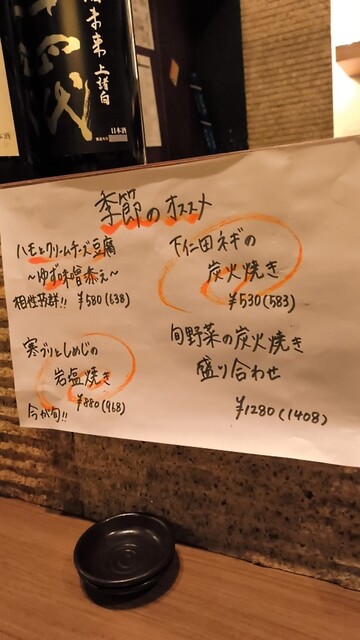 十四代
本未来
上諸白
日本酒
季節のオススメ
ハモとクリームチーズ豆腐
～ゆず味噌添え～
相性抜群!! ¥580(638)
寒ブリとしめじの
岩塩焼き
今が旬!! ¥880(968)
下仁田ネギの
炭火焼き
¥530(583)
旬野菜の炭火焼き
盛り合わせ
¥1280(1408)